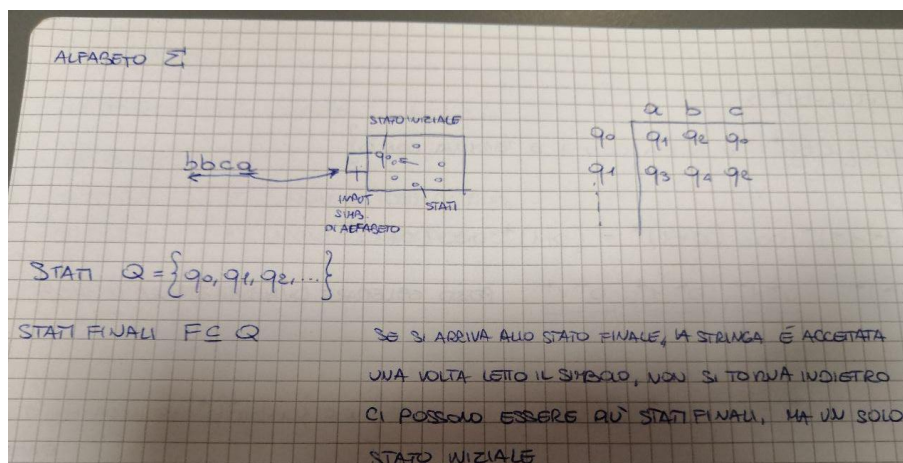 ALFABETO Σ
a b c
STATO INIZIALE
q0 q1 q2 q0
bbca
q0
q1 q3 q4 q2
INPUT
SIMB.
DI ALFABETO
STATI
STATI Q = {q0, q1, q2, ...}
STATI FINALI F ⊆ Q
SE SI ARRIVA ALLO STATO FINALE, LA STRINGA É ACCETTATA
UNA VOLTA LETTO IL SIMBOLO, NON SI TORNA INDIETRO
CI POSSONO ESSERE PIÙ STATI FINALI, MA UN SOLO
STATO INIZIALE